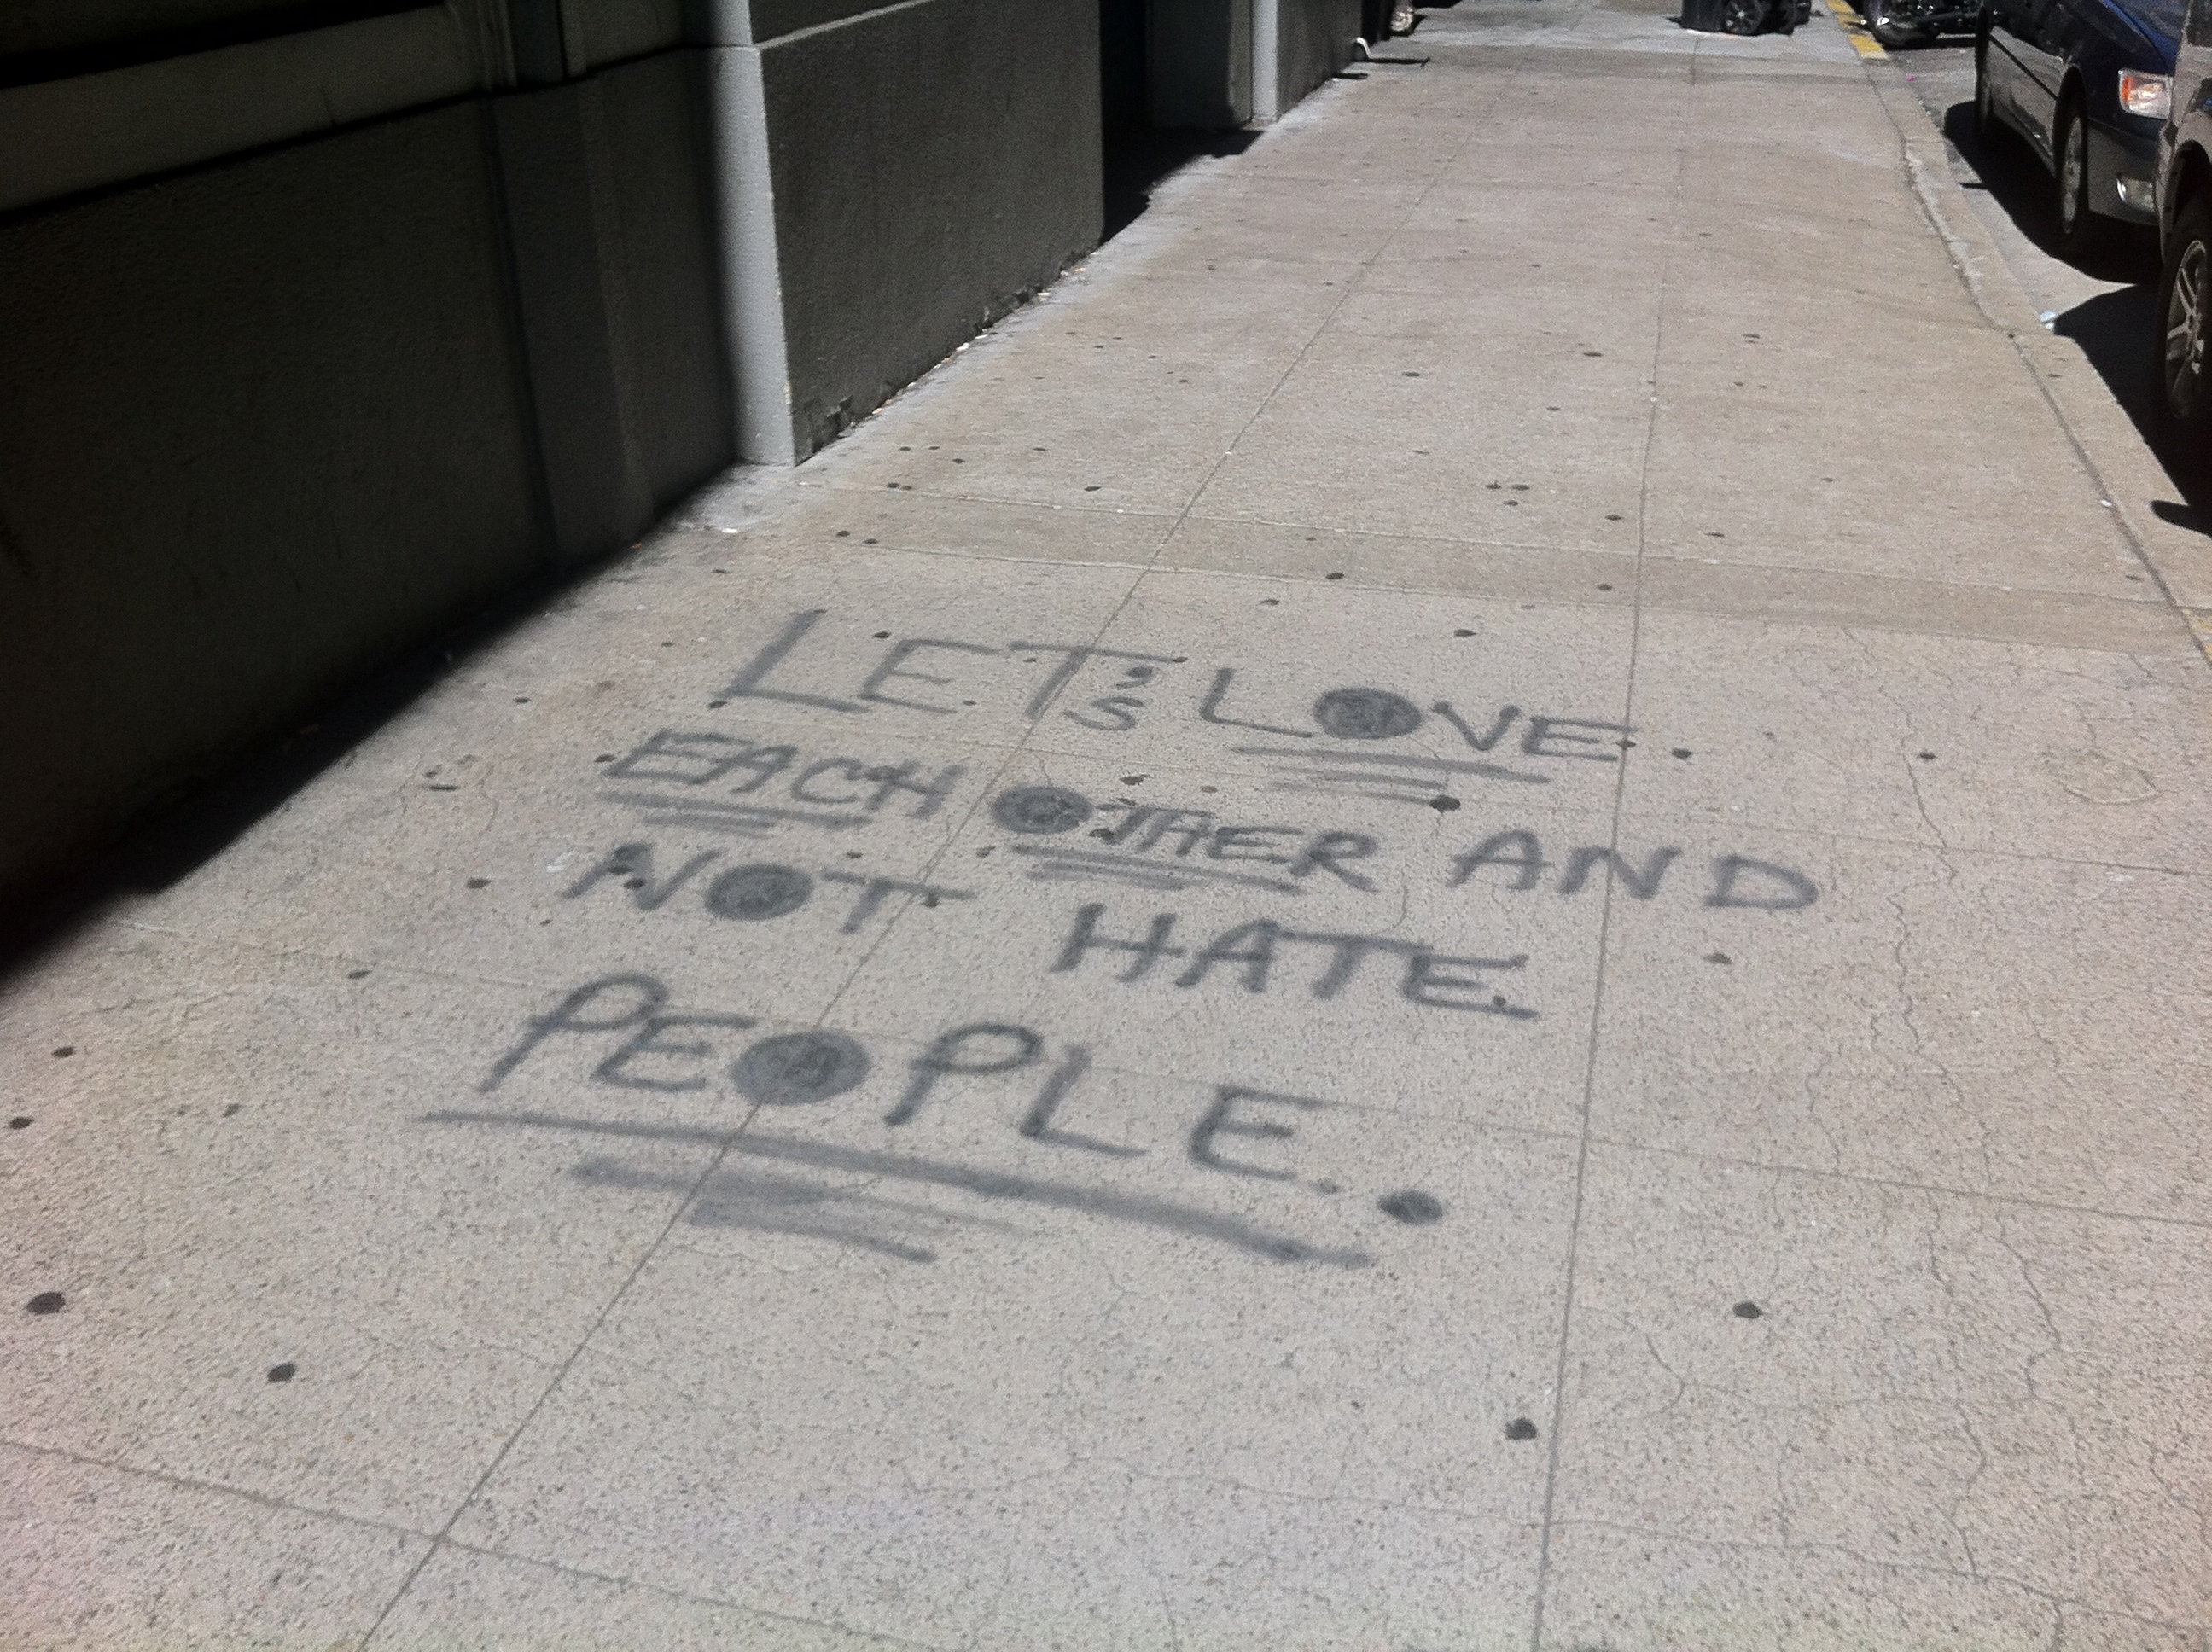 LET'S LOVE
EACH OTHER AND
NOT HATE.
PEOPLE.